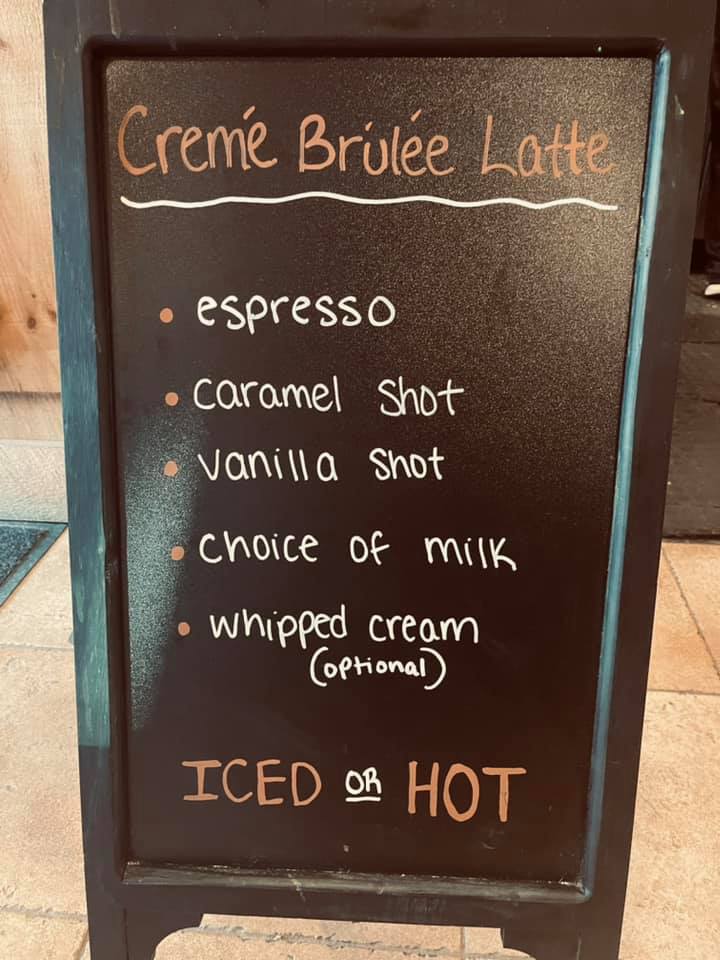 Cremé Brúlée Latte
• espresso
• caramel shot
• vanilla shot
• choice of milk
• whipped cream
(optional)
ICED OR HOT